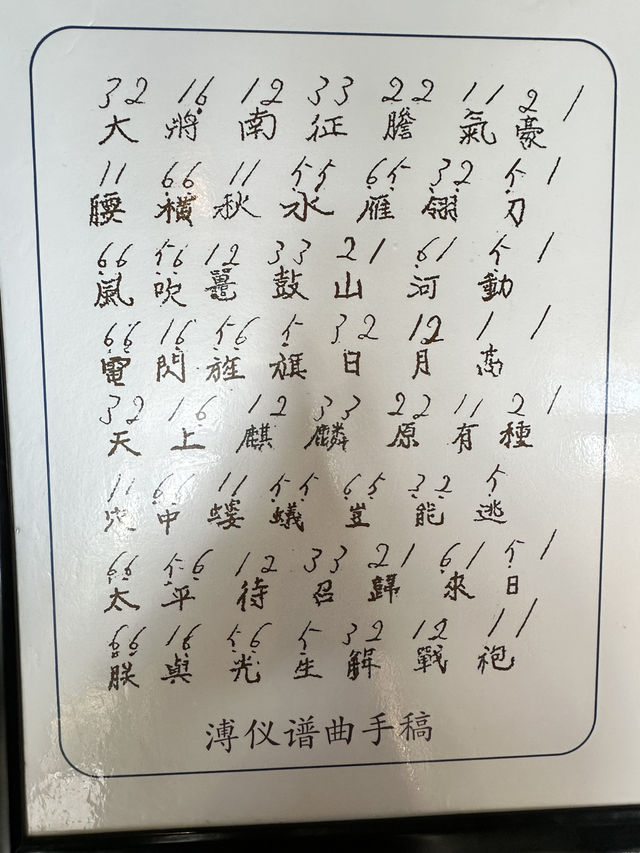 32 16 12 33 22 11 2 1
大 將 南 征 膽 氣 豪
11 66 11 55 65 32 5 1
腰 橫 秋 水 雁 翎 刀
66 56 12 33 21 61 5 1
風 吹 鼉 鼓 山 河 動
66 16 56 5 32 12 1 1
電 閃 旌 旗 日 月 高
32 16 12 33 22 11 2 1
天 上 麒 麟 原 有 種
11 61 11 55 65 32 5
穴 中 螻 蟻 豈 能 逃
66 56 12 33 21 61 5 1
太 平 待 召 歸 來 日
66 16 56 5 32 12 11
朕 與 光 生 解 戰 袍
溥仪谱曲手稿